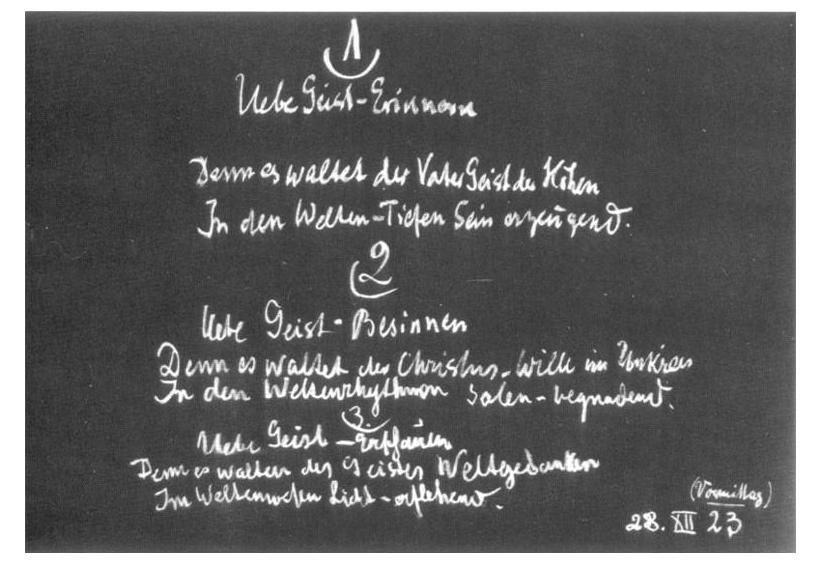 1
Uebe Geist-Erinnern
Denn es waltet der Vater Geist der Höhen
In den Welten-Tiefen Sein erzeugend.
2
Uebe Geist-Besinnen
Denn es waltet der Christus-Wille im Umkreis
In den Weltenrhythmen Selen-begnadend.
3.
Uebe Geist-Erschauen
Denn es walten des Geistes Weltgedanken
Im Weltenwesen Licht-erflehend.
(Vormittag)
28. XII 23